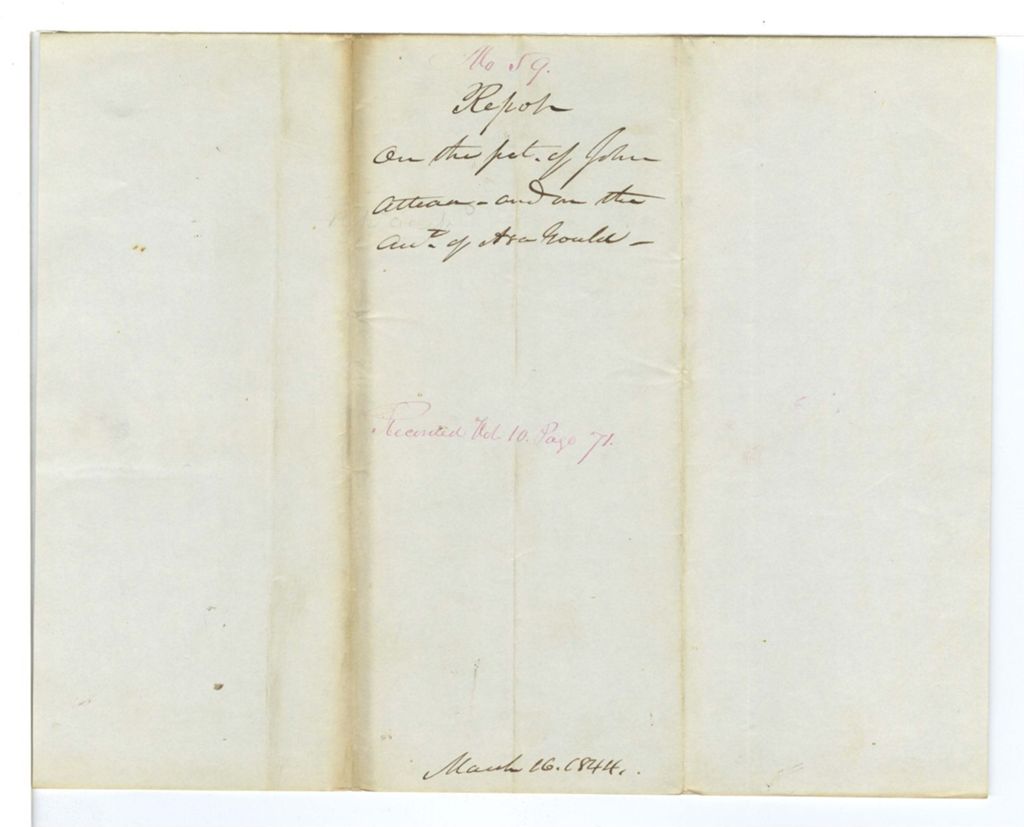 No 59.
Report
On the pet. of John
Attean - and on the
acct. of Asa Gould -
Recorded Vol. 10. Page 71.
March 16. 1844.